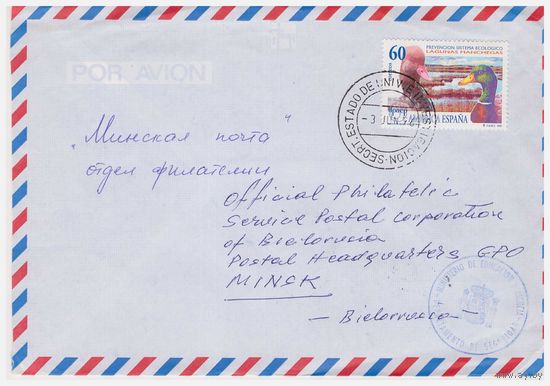 POR AVION
60
PREVENCION SISTEMA ECOLOGICO
LAGUNAS MANCHEGAS
ESPAÑA
SECRT. ESTADO DE UNIV. E INVESTIGACION
- 3 JUN
„Минская почта"
отдел филателии
Official Philatelic
Service Postal Corporation
of Bielorrusia
Postal Headquarters GPO
MINSK
- Bielorrusia -
MINISTERIO DE EDUCACION